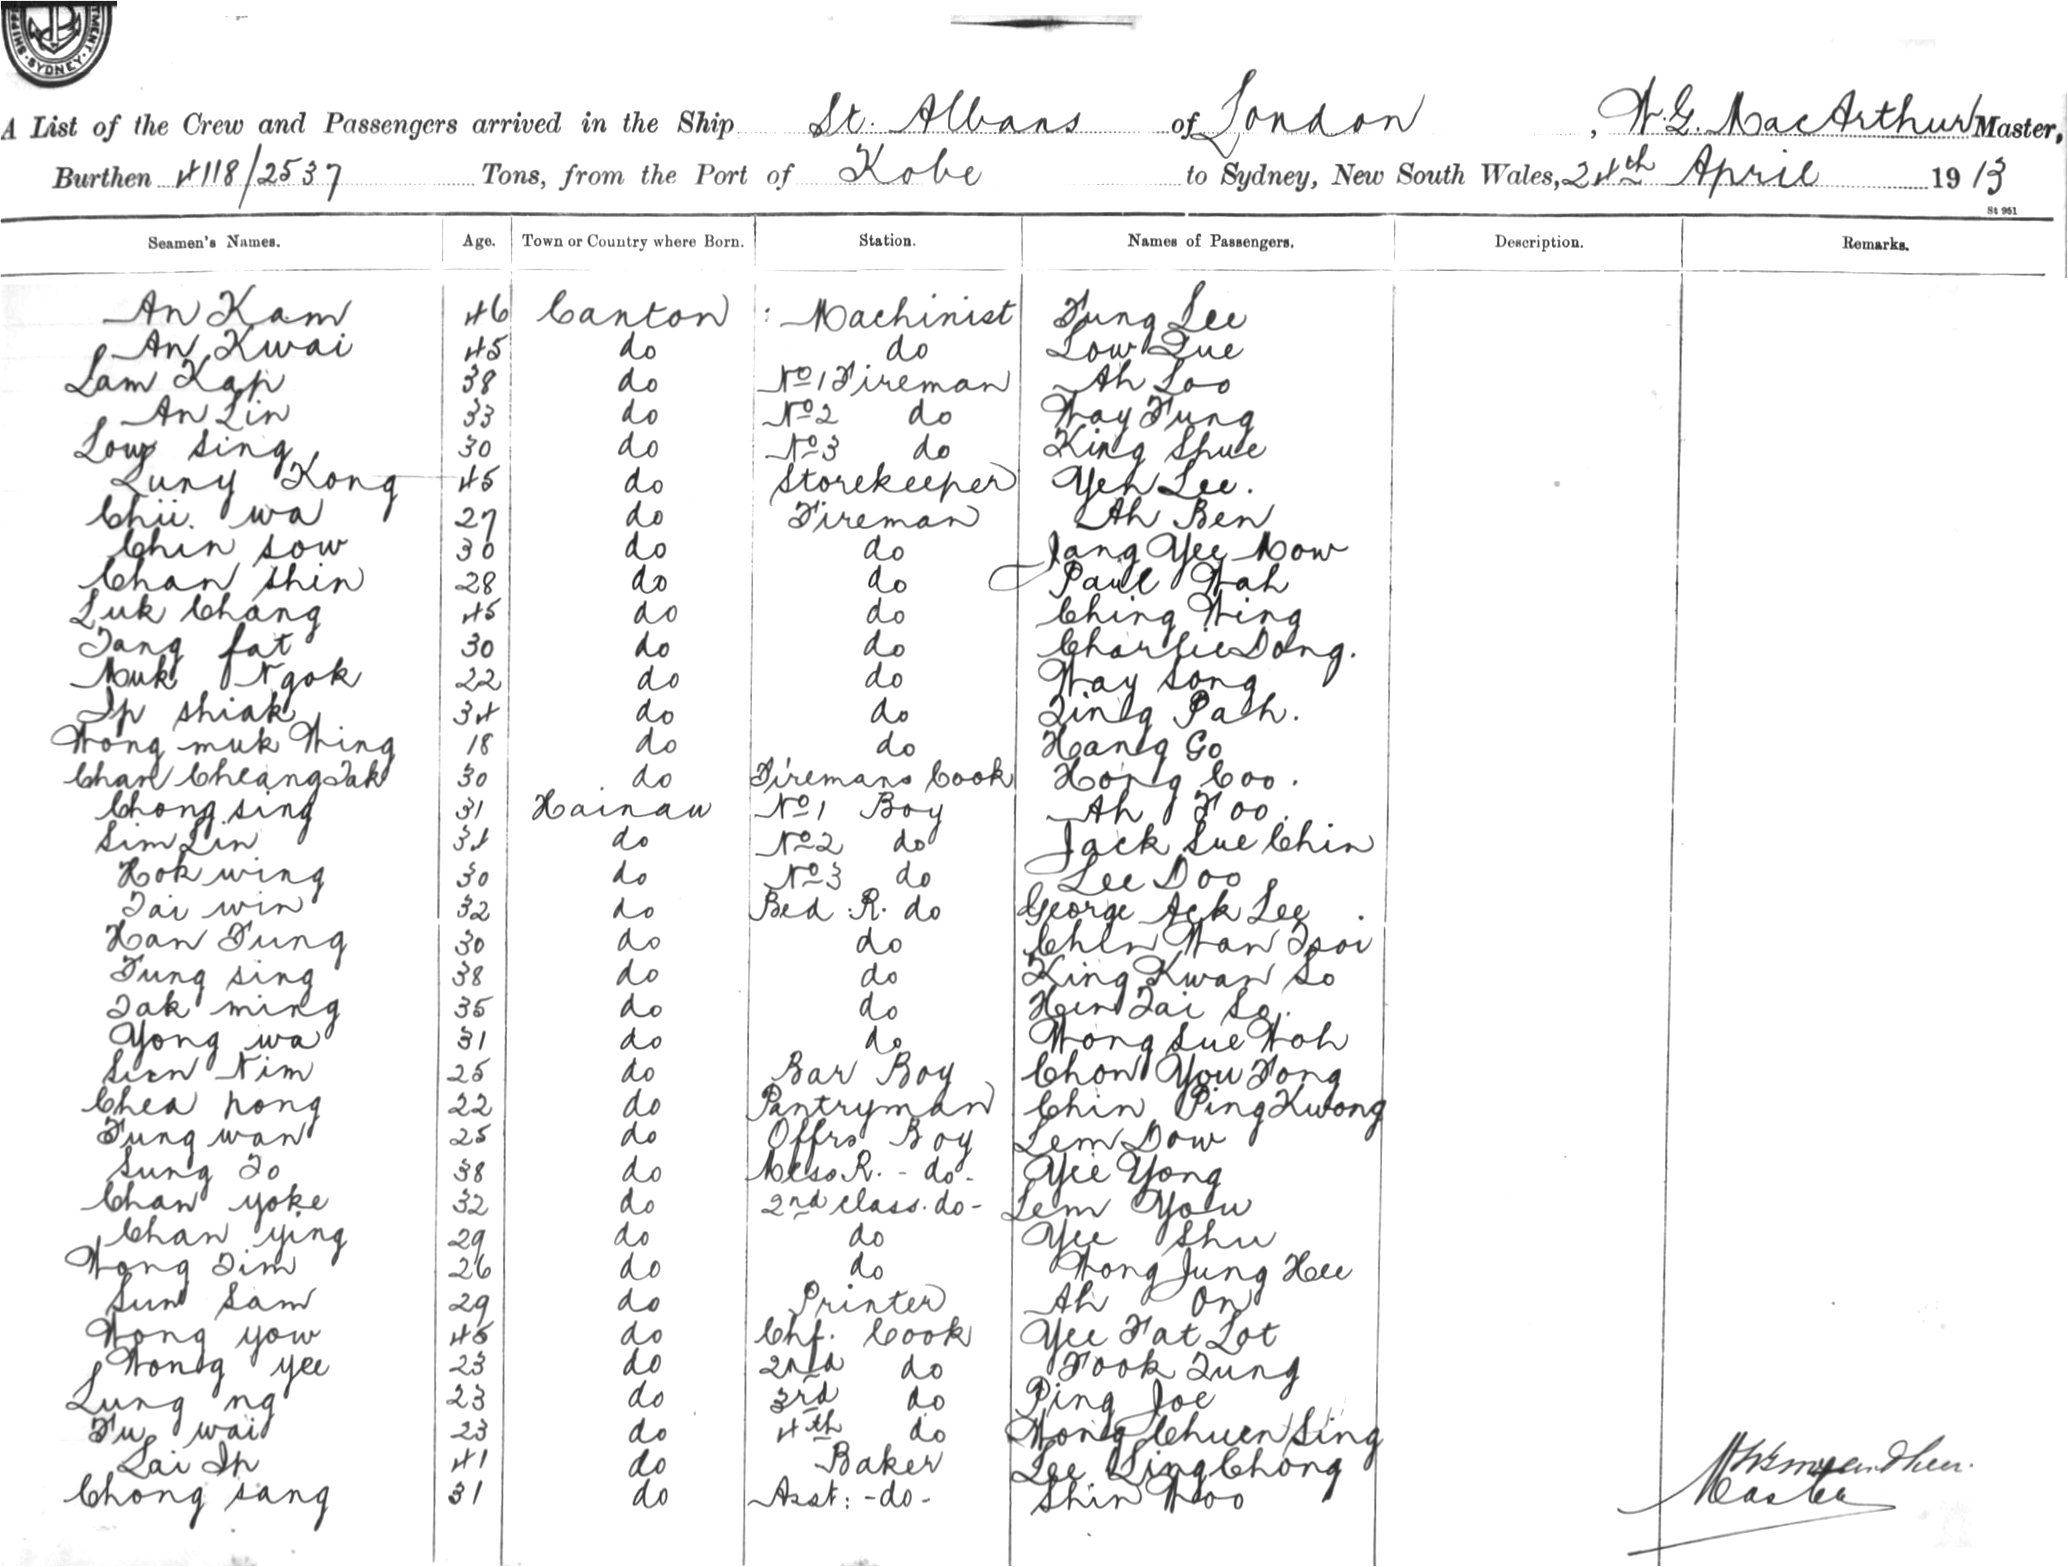 SYDNEY
A List of the Crew and Passengers arrived in the Ship St. Albans of London, W. G. MacArthur Master,
Burthen 4118/2537 Tons, from the Port of Kobe to Sydney, New South Wales, 24th April 1913
St 961
Seamen's Names. Age. Town or Country where Born. Station. Names of Passengers. Description. Remarks.
An Kam 46 Canton Machinist Fung Lee
An Kwai 45 do do Low Que
Lam Kap 38 do No 1 Fireman Ah Loo
An Lin 33 do No 2 do Way Fung
Low Sing 30 do No 3 do King Shue
Luny Kong 45 do Storekeeper Yeh Lee.
Chii. wa 27 do Fireman Ah Ben
Chin sow 30 do do Jang Yee Mow
Chan shin 28 do do Paul Wah
Luk Chang 45 do do Ching Wing
Tang fat 30 do do Charlie Dong.
Muk Ngok 22 do do Way Song
Ip shiak 34 do do Qing Pah.
Wong muk Wing 18 do do Hang Go
Chan Cheang Tak 30 do Firemans Cook Hong Coo.
Chong sing 31 Hainau No 1 Boy Ah Foo.
Sim Lin 34 do No 2 do Jack Sue Chin
Hok wing 30 do No 3 do Lee Doo
Tai win 32 do Bed R. do George Ack Lee
Han Fung 30 do do Chin Wan Tsoi
Fung sing 38 do do King Kwan So
Tak ming 35 do do Hen Tai So.
Yong wa 31 do do Wong Sue Hoh
Nim 25 do Bar Boy Chon You Fong
Chea hong 22 do Pantryman Chin Ping Kwong
Fung wan 25 do Offrs Boy Lem Dow
Sung To 38 do Mess R. - do - Yee Yong
Chan yoke 32 do 2nd class. do - Lem You
Chan ying 29 do do Yee Shu
Wong Tim 26 do do Wong Jung Hee
Sun Sam 29 do Printer Ah On
Wong yow 45 do Chf. Cook Yee Fat Lot
Wong yee 23 do 2nd do Fook Tung
Lung ng 23 do 3rd do Ping Joe
Fu wai 23 do 4th do Wong Chuen Sing
Lai Ip 41 do Baker Lee Ling Chong
Chong sang 31 do Asst: - do - Shin Woo
Master